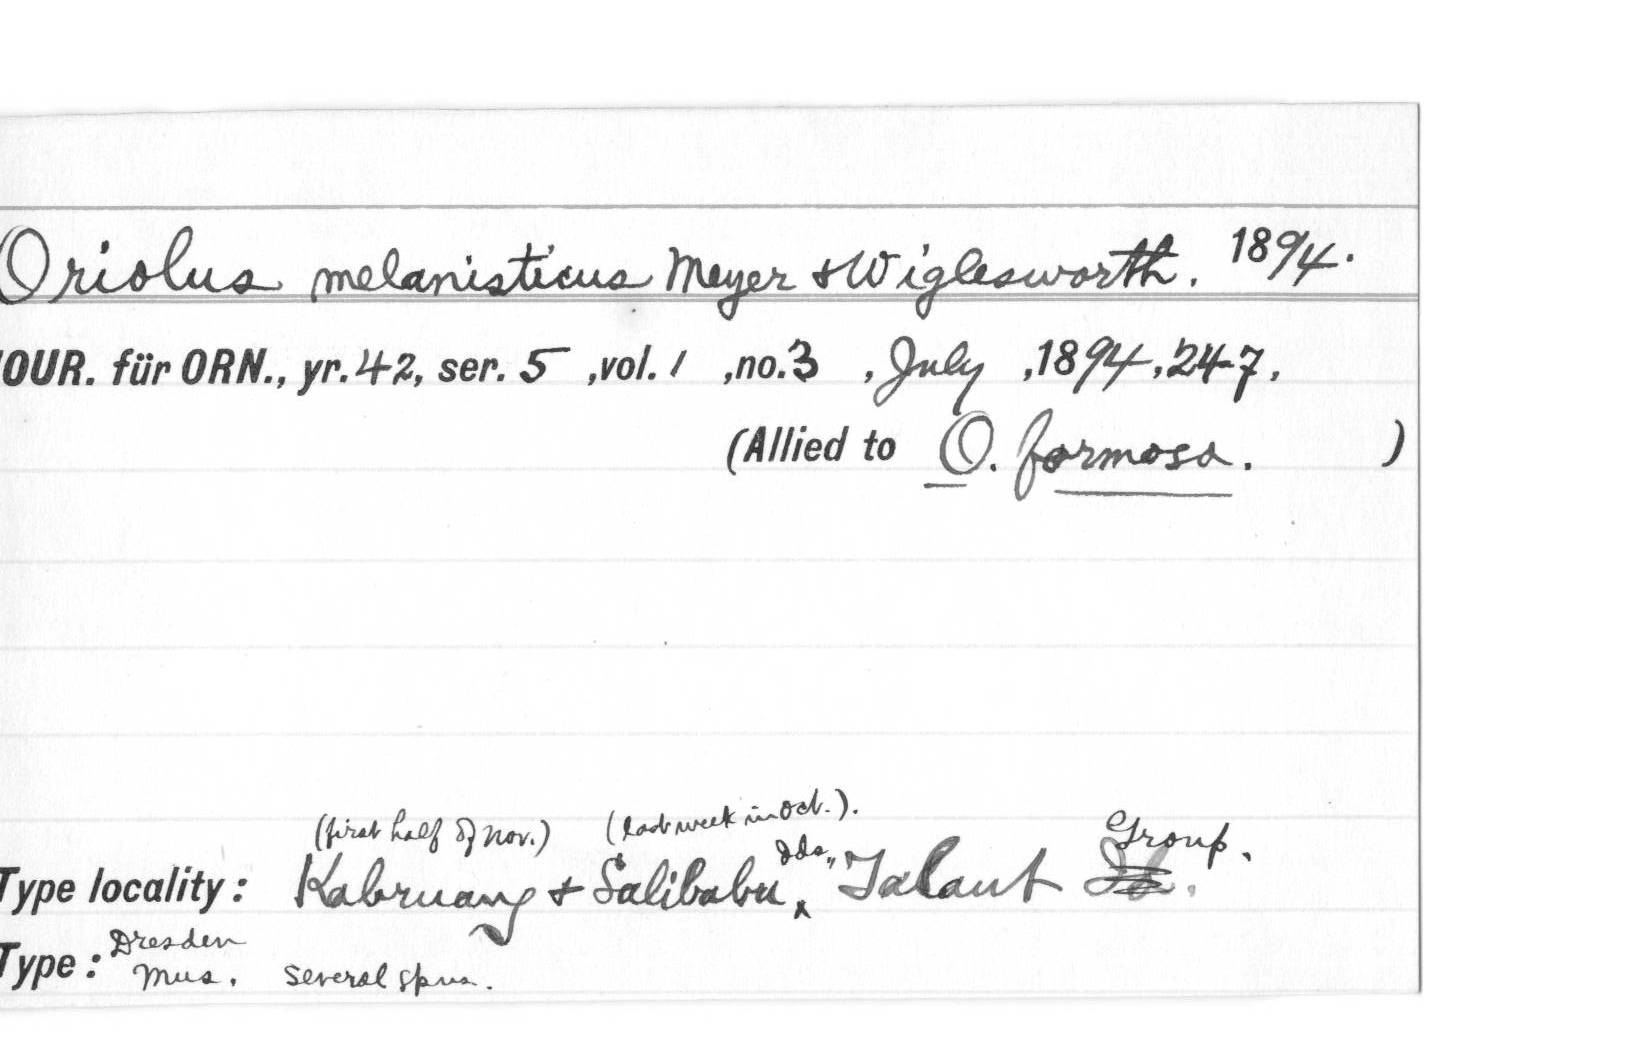 Oriolus melanisticus Meyer & Wiglesworth. 1894.
OUR. für ORN., yr. 42, ser. 5 ,vol. 1 ,no. 3 , July ,1894, 247,
(Allied to O. formosa. )
(first half of Nov.) (last week in Oct.).
Ids., Group.
Type locality: Kabruang & Salibabu, Talaut Is.
Type: Dresden
Mus. several spns.